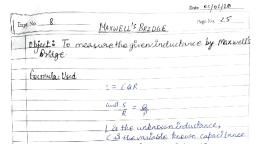 Date 01/01/20
Expt. No. 8
Page No. 25
MAXWELL'S BRIDGE
Object: To measure the given inductance by Maxwell's
Bridge
Formula Used
L = CQR
and S/R = Q/P
L is the unknown inductance,
C is the variable known capacitance